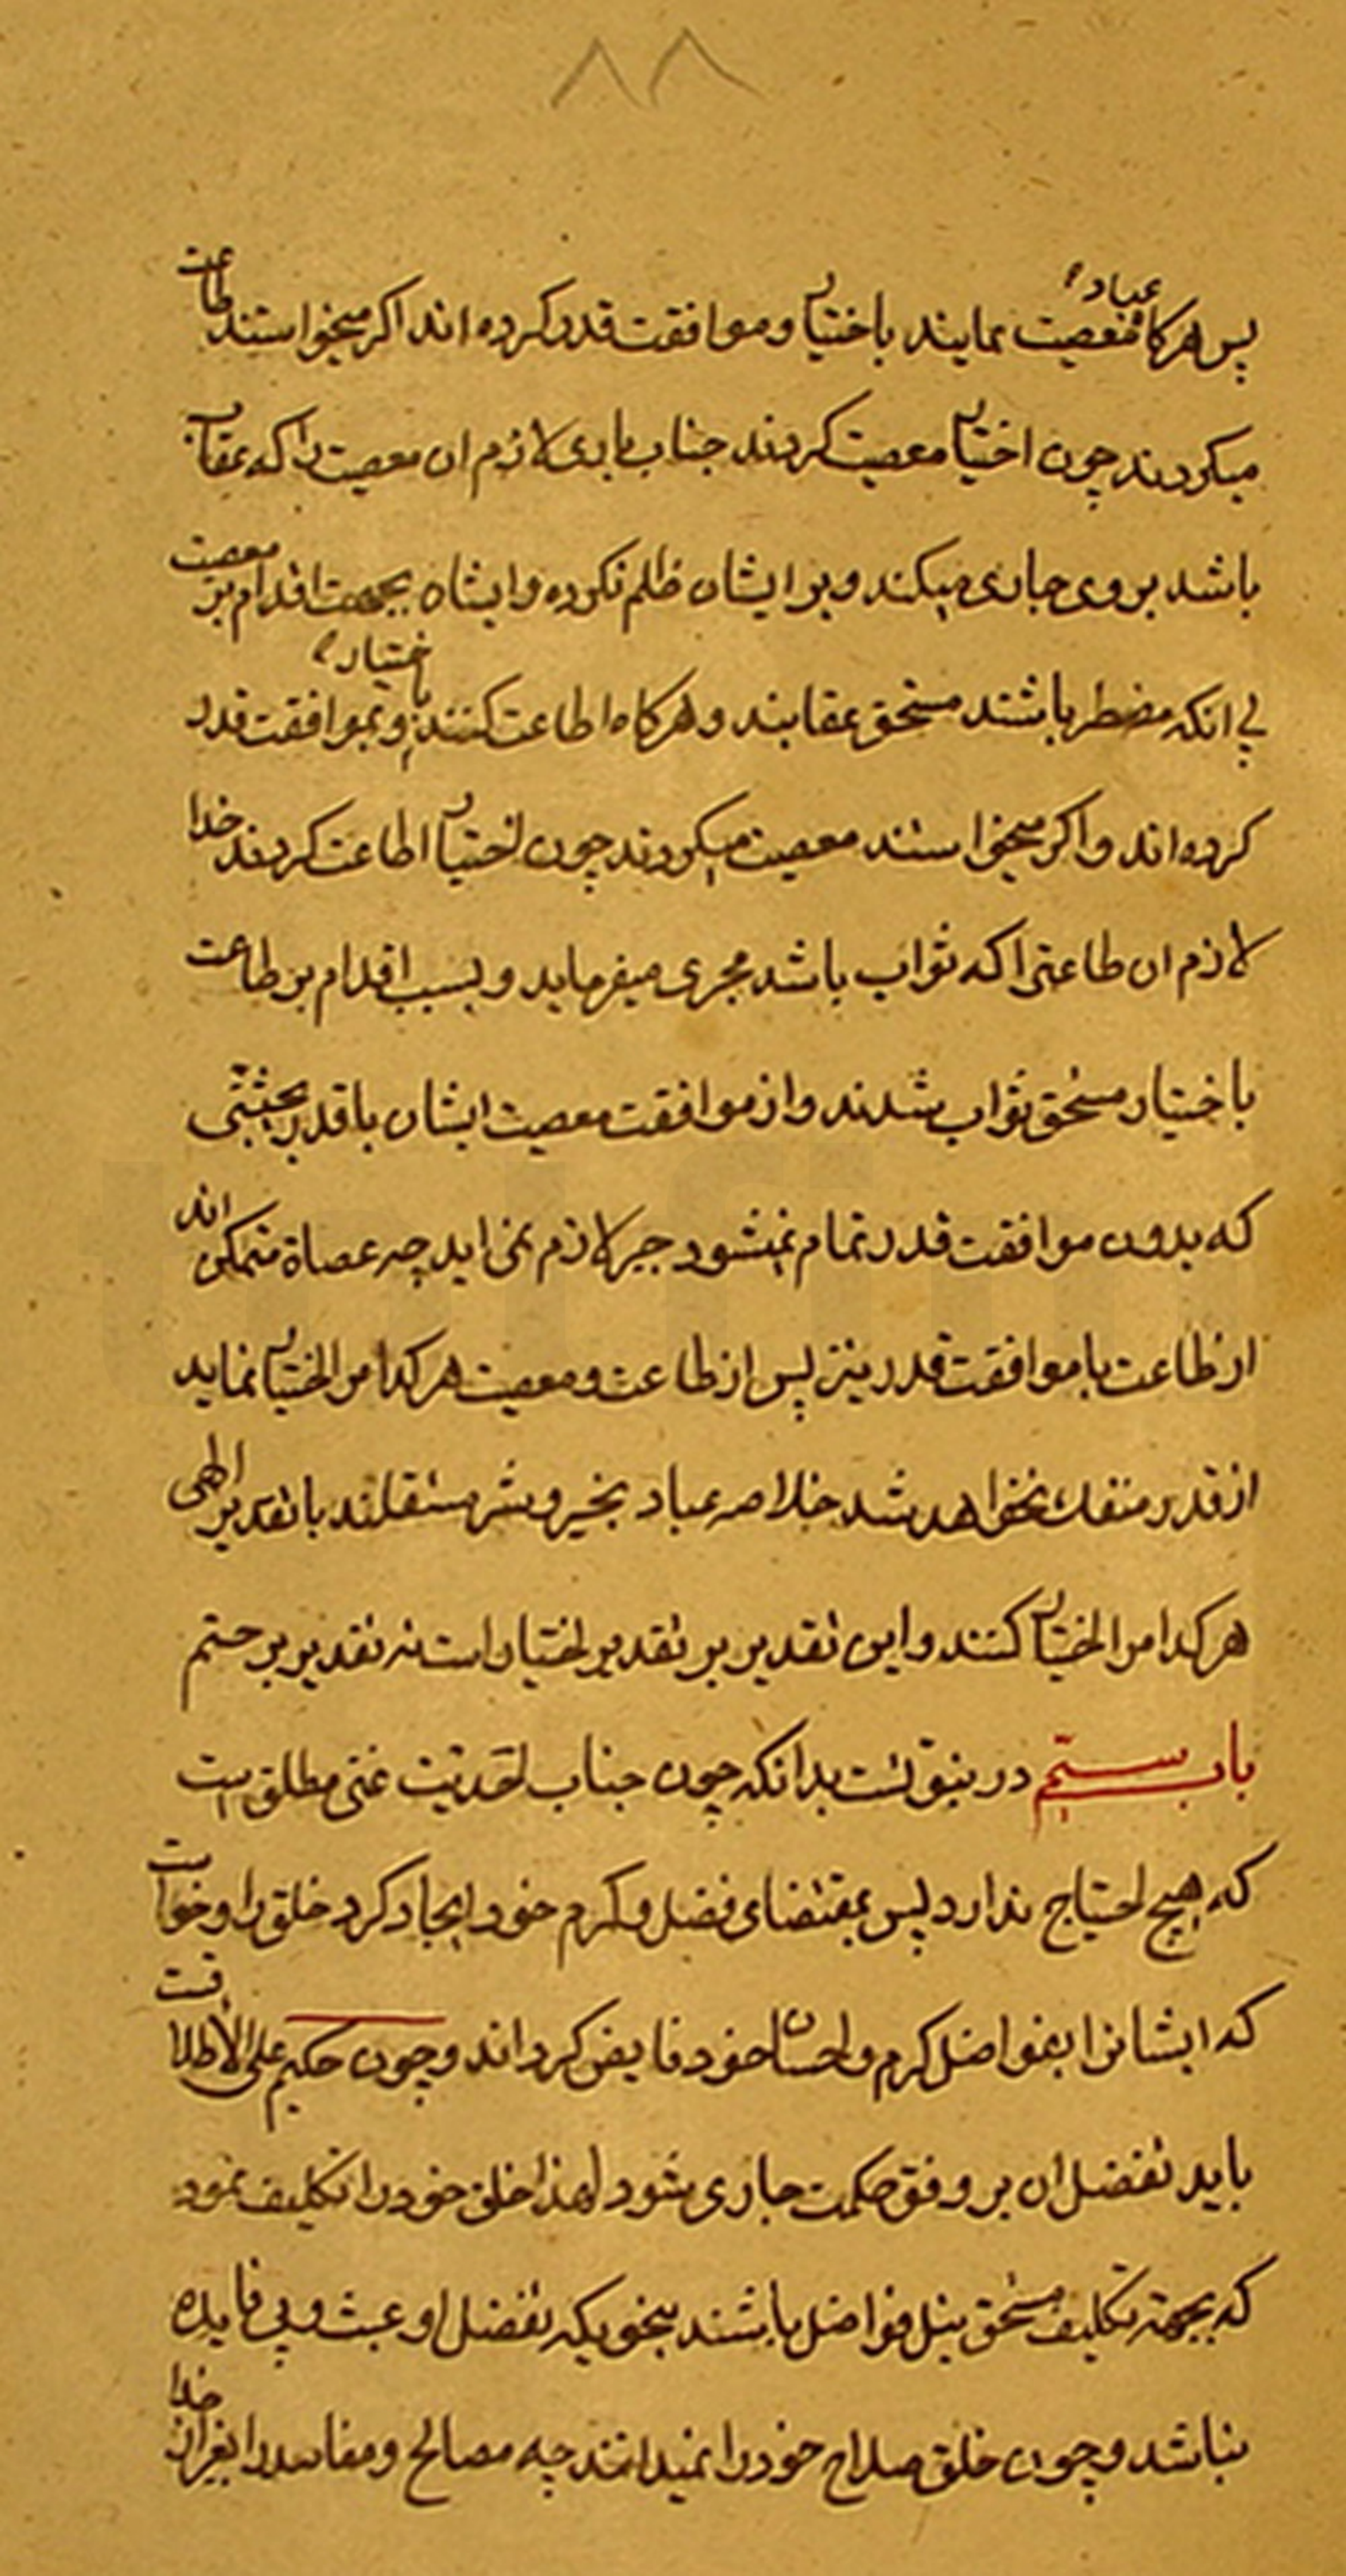 ٨٨
پس هرکاه عباد معصیت نمایند باختیار و موافقت قدر کرده اند اکر میخواستند طاعت
میکردند چون اختیار معصیت کردند جناب باری لازم ان معصیت را که عقاب
باشد بر وی جاری میکند و بر ایشان ظلم نکرده و ایشان بجهت اقدام بر معصیت
بی انکه مضطر باشند مستحق عقابند و هرکاه اطاعت کنند باختیار و بموافقت قدر
کرده اند و اکر میخواستند معصیت میکردند چون اختیار اطاعت کردند خدا
لازم ان طاعتی را که ثواب باشد مجری میفرماید و بسبب اقدام بر طاعت
باختیار مستحق ثواب شدند و از موافقت معصیت ایشان با قدر بحیثیتی
که بدون موافقت قدر تمام نمیشود جبر لازم نمی اید چه عصاة متمکن اند
از طاعت با موافقت قدر نیز پس از طاعت و معصیت هر کدام را اختیار نماید
از قدر منفک نخواهد شد خلاصه عباد بخیر و شر مستقلند با تقدیر الهی
هر کدام را اختیار کنند و این تقدیر بر تقدیر اختیار است نه تقدیر بر حتم
باب بیستم در نبوتست بدانکه چون جناب احدیت غنی مطلق است
که هیچ احتیاج ندارد پس بمقتضای فضل و کرم خود ایجاد کرد خلق را و خواست
که ایشانرا بفواضل کرم و احسان خود فایض کرداند و چون حکیم علی الاطلاقست
باید تفضل ان بر وفق حکمت جاری شود لهذا خلق خود را تکلیف نمود
که بجهة تکلیف مستحق نیل فواضل باشند بنحویکه تفضل او عبث و بی فایده
نباشد و چون خلق صلاح خود را نمیدانند چه مصالح و مفاسد را بغیر از خدا